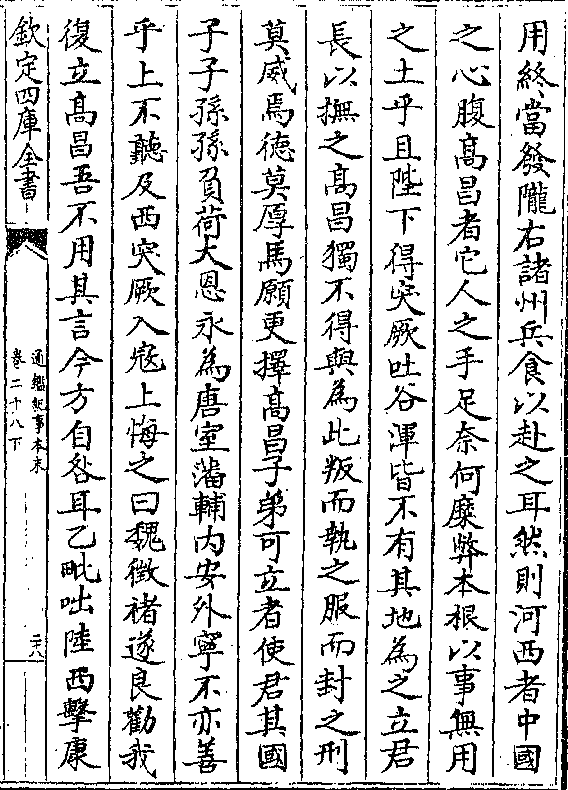 用終當發隴右諸州兵食以赴之耳然則河西者中國
之心腹髙昌者它人之手足奈何糜弊本根以事無用
之土乎且陛下得突厥吐谷渾皆不有其地為之立君
長以撫之髙昌獨不得與為比叛而執之服而封之刑
莫威焉徳莫厚焉願更擇髙昌子弟可立者使君其國
子子孫孫負荷大恩永為唐室藩輔内安外寧不亦善
乎上不聽及西突厥入宼上悔之曰魏徴禇遂良勸我
復立髙昌吾不用其言今方自咎耳乙毗咄陸西擊康
欽定四庫全書
通鑑紀事本末
卷二十八下
二八